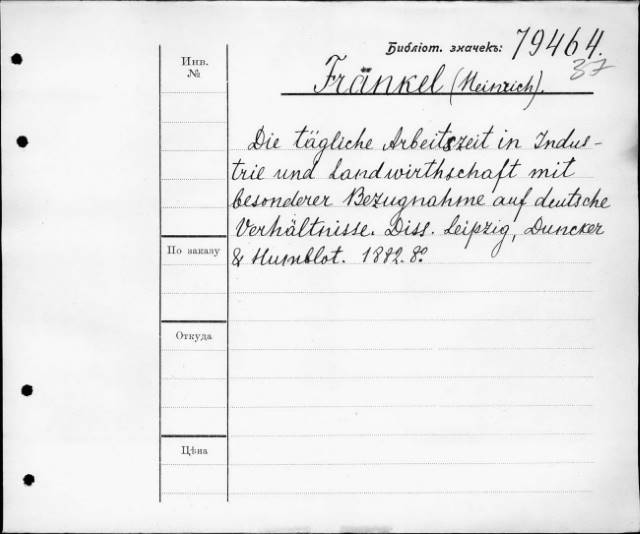 Библіот. значекъ: 79464.
37
Инв.
№
Fränkel (Heinrich).
Die tägliche Arbeitszeit in Indus-
trie und Landwirthschaft mit
besonderer Bezugnahme auf deutsche
Verhältnisse. Diss. Leipzig, Duncker
& Humblot. 1882. 8°.
По заказу
Откуда
Цѣна